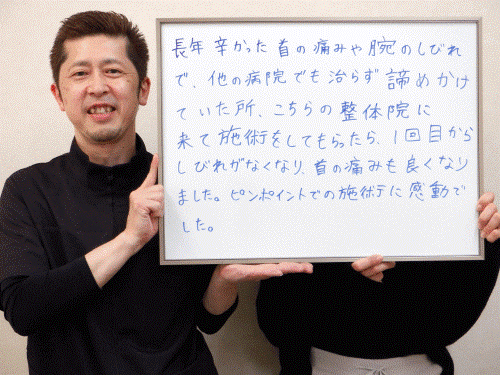 長年辛かった首の痛みや腕のしびれ
で、他の病院でも治らず諦めかけ
ていた所、こちらの整体院に
来て施術をしてもらったら、1回目から
しびれがなくなり、首の痛みも良くなり
ました。ピンポイントでの施術に感動で
した。